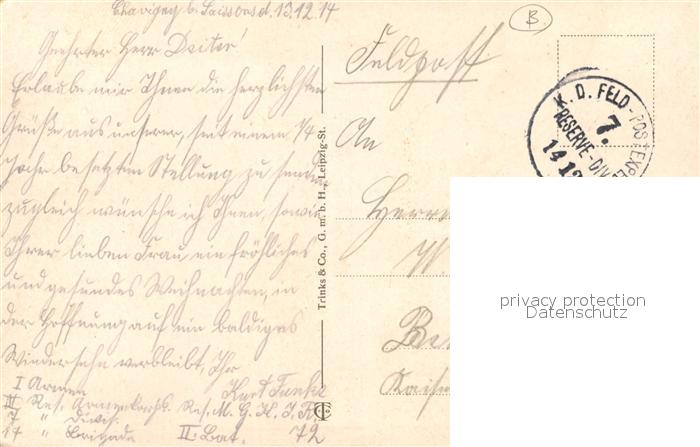 Chavigny b. Soissons d. 13.12.14
Geehrter Herr Deiter!
Erlaube mir Ihnen die herzlichsten
Grüße aus unserer, seit einem 1/4
Jahr besetzten Stellung zu senden
zugleich wünsche ich Ihnen, sowie
Ihrer lieben Frau ein fröhliches
und gesundes Weihnachten, in
der Hoffnung auf ein baldiges
Wiedersehn verbleibt, Ihr
Kurt Funke
I Armee
III Res.
7 " Divis.
17 " Brigade II. Bat. 72
Trinks & Co., G. m. b. H., Leipzig-St.
B.
Feldpost
An
Herrn
W.
K. D. FELD-POSTEXPE
7.
RESERVE-DIV
14 12
privacy protection
Datenschutz